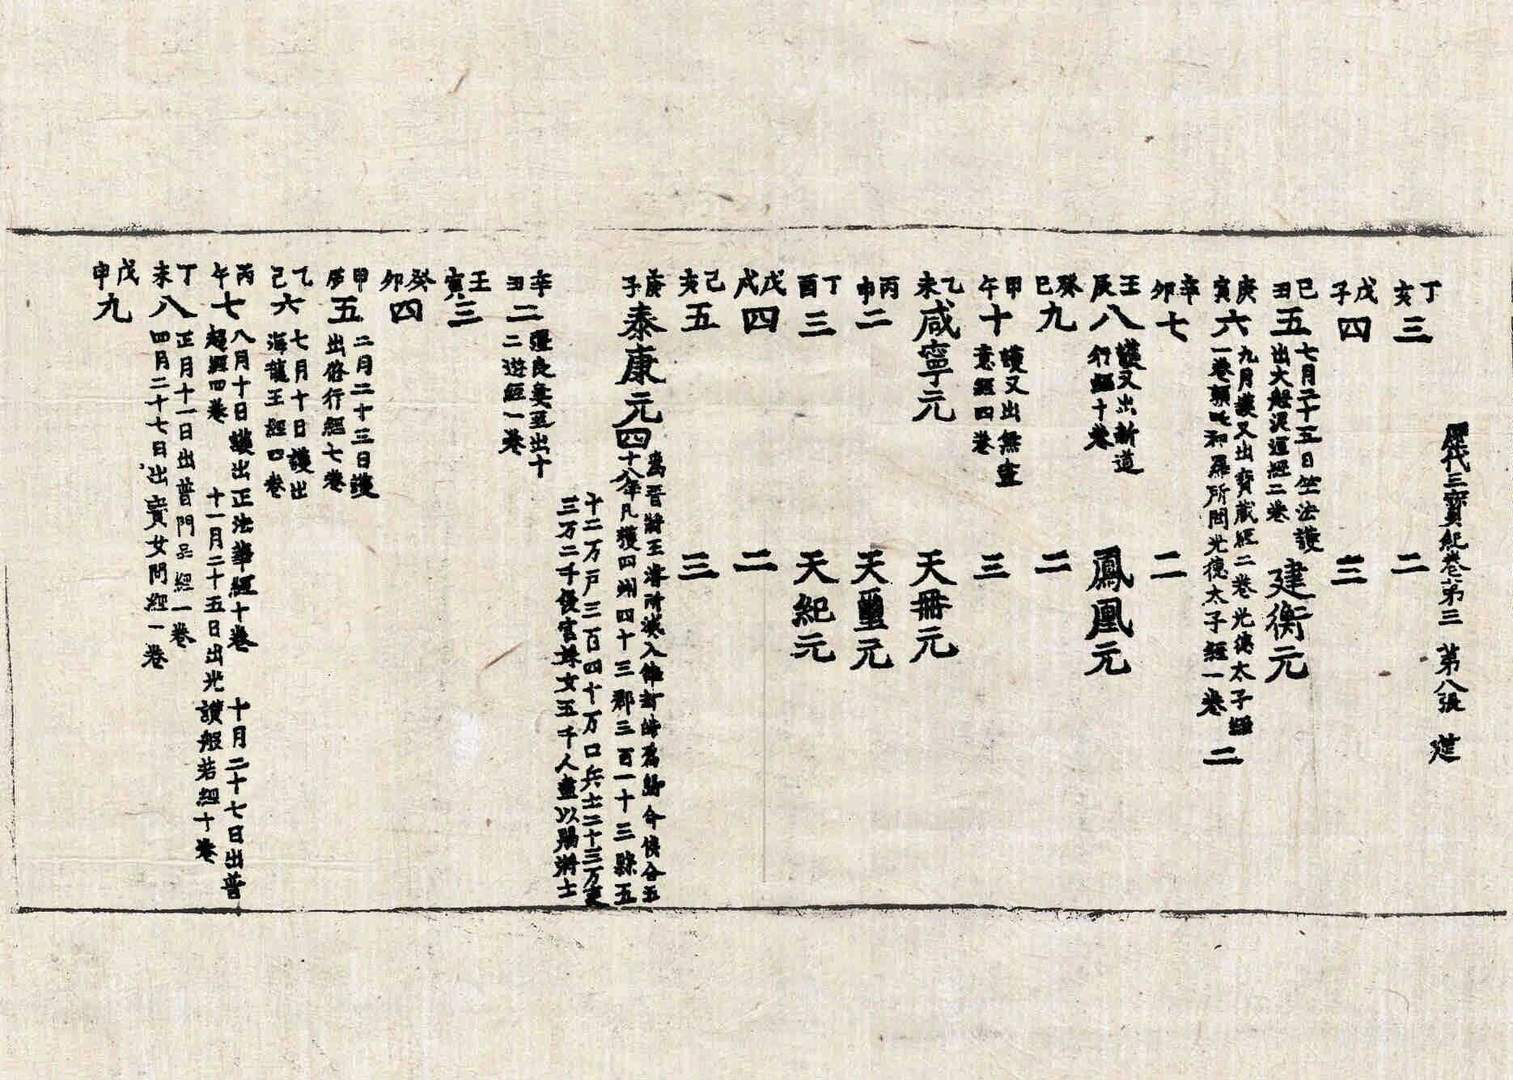 歷代三寶紀卷第三 第八張 建
丁亥三 二
戊子四 三
己丑五 七月二十五日竺法護
出大般泥洹經二卷 建衡元
庚寅六 九月護又出寶藏經二卷光德太子經
一卷頼吒和羅所問光德太子經一卷 二
辛卯七 二
壬辰八 護又出新道
行經十卷 鳳凰元
癸巳九 二
甲午十 護又出無盡
意經四卷 三
乙未咸寧元 天冊元
丙申二 天璽元
丁酉三 天紀元
戊戌四 二
己亥五 三
庚子泰康元 四 為晉將王濬所滅入雒封晧為歸命侯合五
十八年凡獲四州四十三郡三百一十三縣五
十二万戸三百四十万口兵士二十三万吏
三万二千後宮婇女五千人盡以賜將士
辛丑二 疆良婁至出十
二遊經一卷
壬寅三
癸卯四
甲辰五 二月二十三日護
出修行經七卷
乙巳六 七月十日護出
海龍王經四卷
丙午七 八月十日護出正法華經十卷 十月二十七日出普
超經四卷 十一月二十五日出光讚般若經十卷
丁未八 正月十一日出普門品經一卷
四月二十七日出寶女問經一卷
戊申九